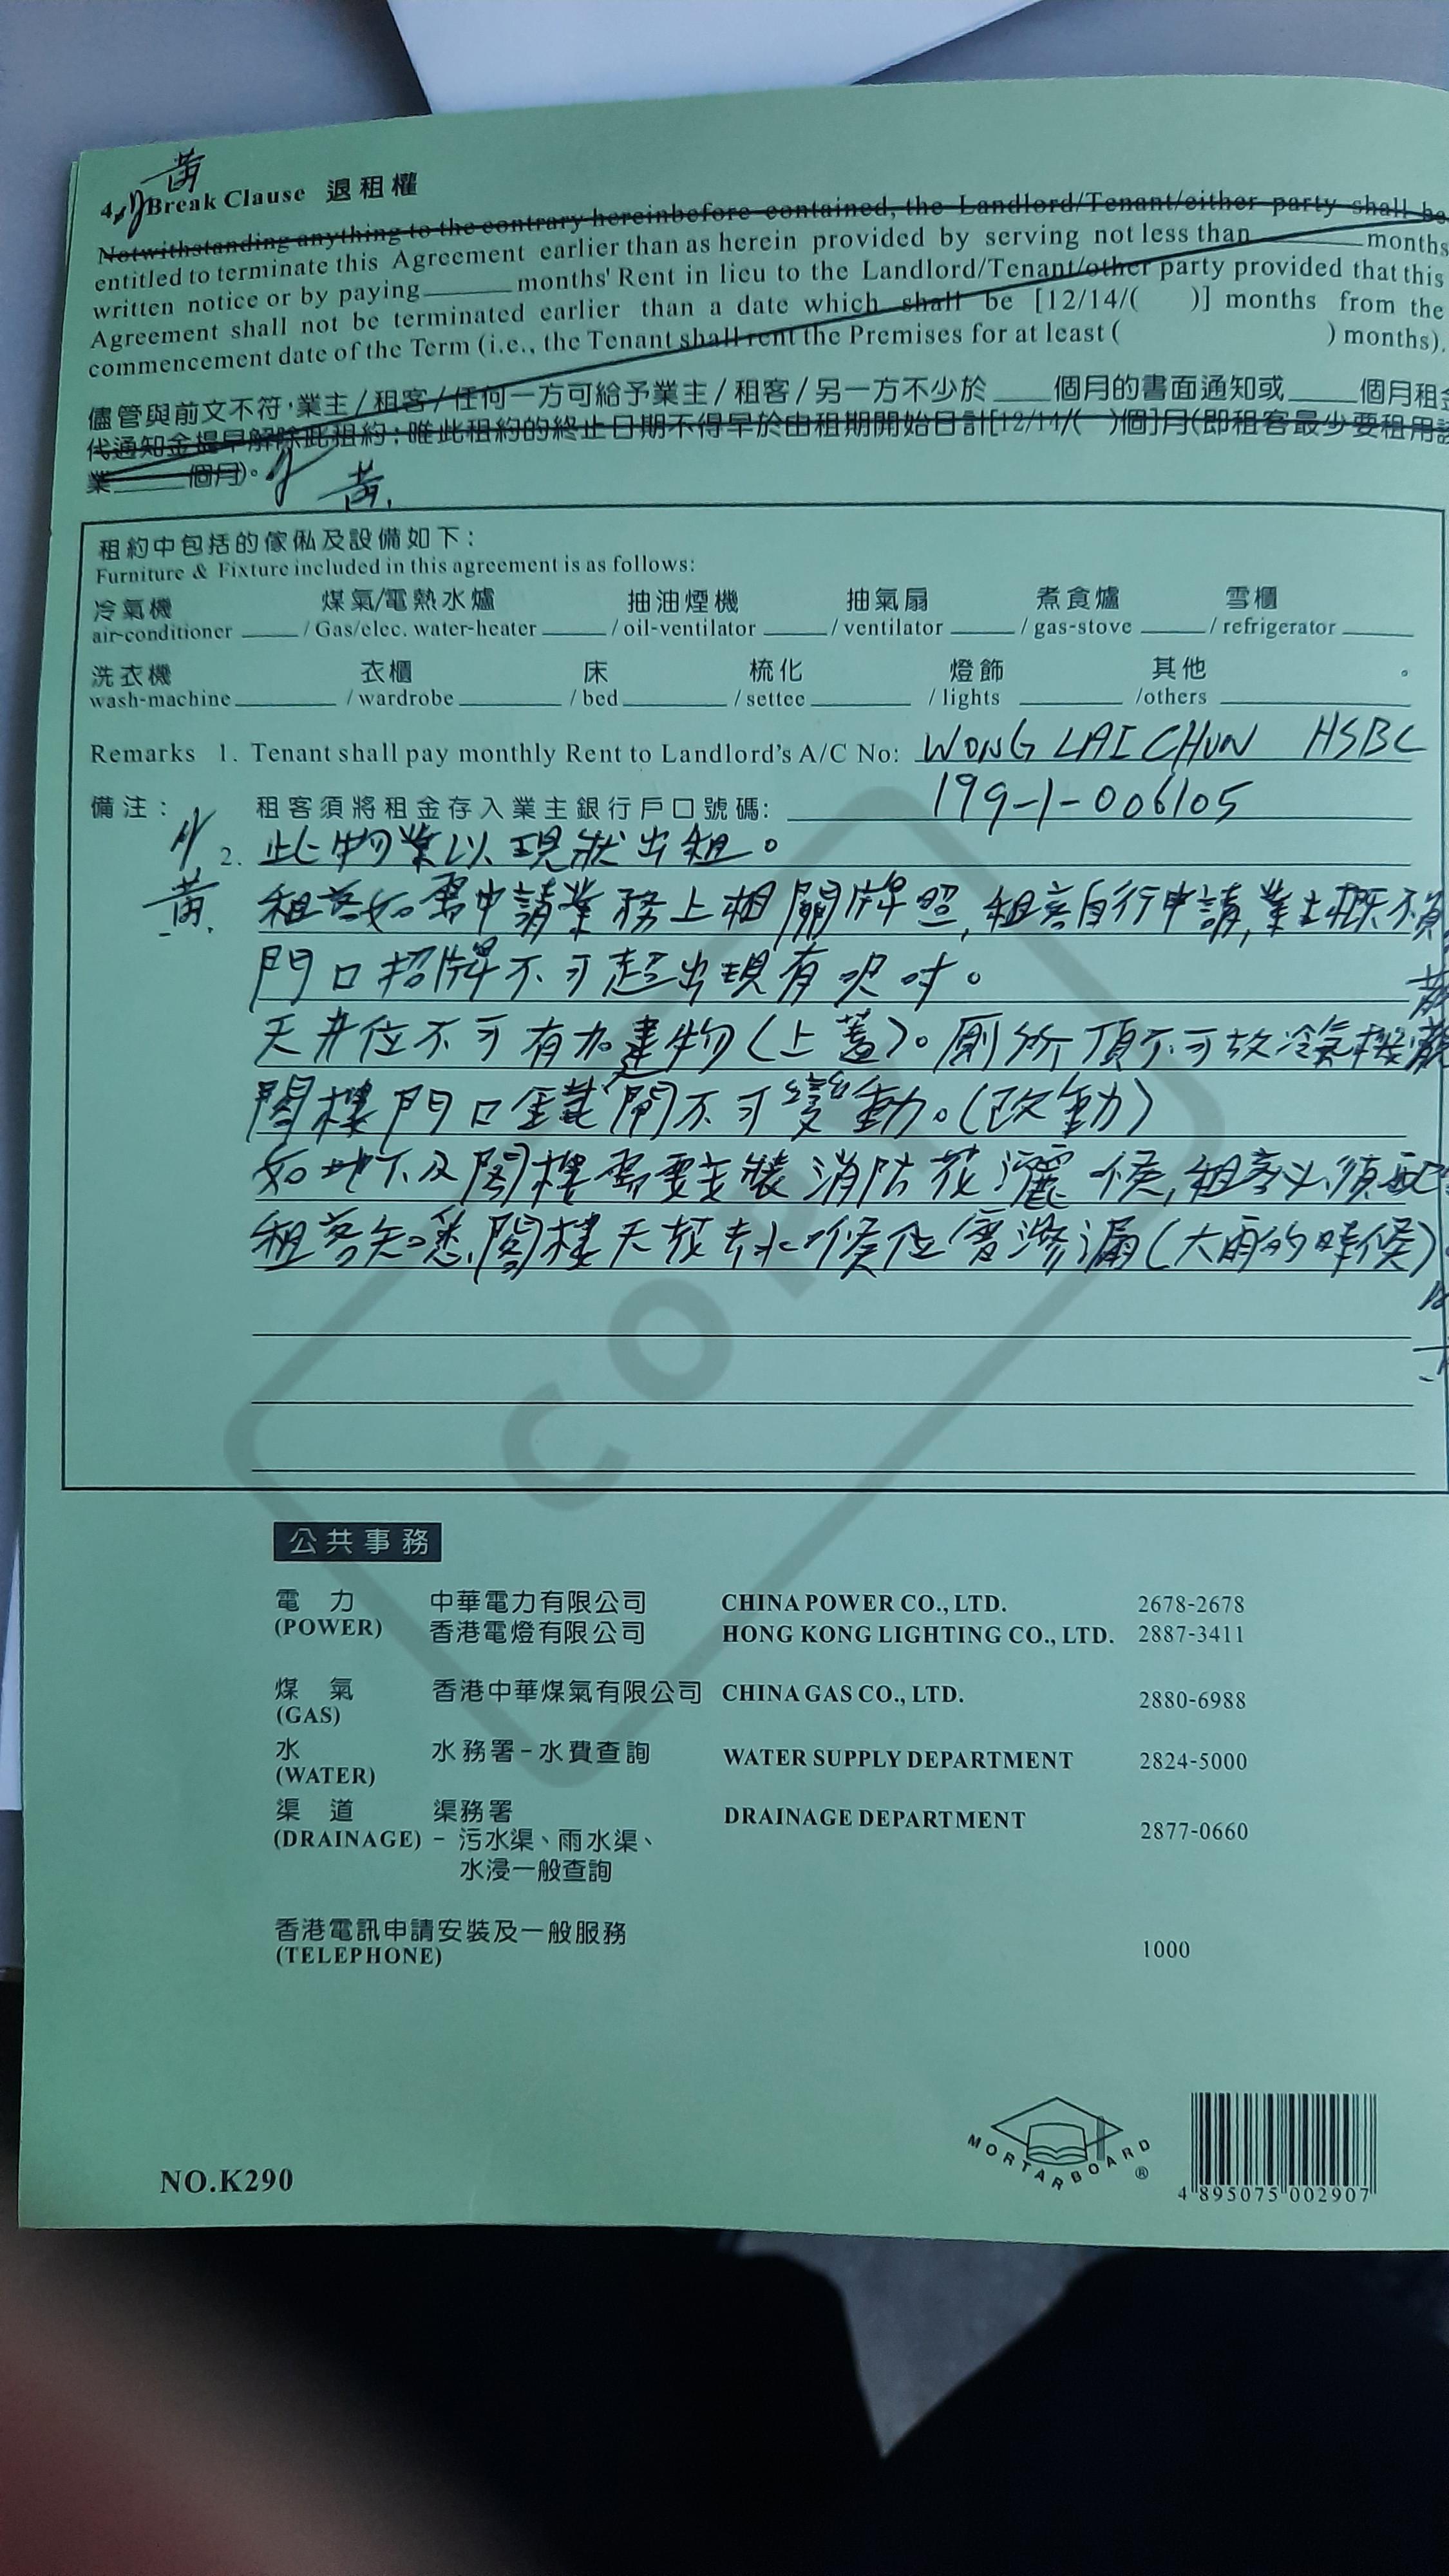 黃
4. Break Clause 退租權
Notwithstanding anything to the contrary hereinbefore contained, the Landlord/Tenant/either party shall be
entitled to terminate this Agreement earlier than as herein provided by serving not less than ______ months
written notice or by paying ______ months' Rent in lieu to the Landlord/Tenant/other party provided that this
Agreement shall not be terminated earlier than a date which shall be [12/14/( )] months from the
commencement date of the Term (i.e., the Tenant shall rent the Premises for at least ( ) months).
儘管與前文不符，業主/租客/任何一方可給予業主/租客/另一方不少於____個月的書面通知或____個月租金
代通知金提早解除此租約；唯此租約的終止日期不得早於由租期開始日計[12/14/( )個]月(即租客最少要租用該
業____個月)。
黃
租約中包括的傢俬及設備如下：
Furniture & Fixture included in this agreement is as follows:
冷氣機 煤氣/電熱水爐 抽油煙機 抽氣扇 煮食爐 雪櫃
air-conditioner ____ / Gas/elec. water-heater ____ / oil-ventilator ____ / ventilator ____ / gas-stove ____ / refrigerator ____
洗衣機 衣櫃 床 梳化 燈飾 其他 。
wash-machine ____ / wardrobe ____ / bed ____ / settee ____ / lights ____ /others ____
Remarks 1. Tenant shall pay monthly Rent to Landlord's A/C No: WONG LAI CHUN HSBC
備注： 租客須將租金存入業主銀行戶口號碼: 199-1-006105
2. 此物業以現狀出租。
黃 租客如需申請業務上相關牌照,租客自行申請,業主概不負
門口招牌不可超出現有呎吋。
天井位不可有加建物(上蓋)。廁所頂不可放冷氣機
閣樓門口鐵閘不可變動。(改動)
如地下及閣樓需要安裝消防花灑 候,租客必須配
租客知悉,閣樓天 去水 位會滲漏(大雨的時候)
COPY
公共事務
電力 中華電力有限公司 CHINA POWER CO., LTD. 2678-2678
(POWER) 香港電燈有限公司 HONG KONG LIGHTING CO., LTD. 2887-3411
煤氣 香港中華煤氣有限公司 CHINA GAS CO., LTD. 2880-6988
(GAS)
水 水務署－水費查詢 WATER SUPPLY DEPARTMENT 2824-5000
(WATER)
渠道 渠務署 DRAINAGE DEPARTMENT 2877-0660
(DRAINAGE) － 污水渠、雨水渠、
水浸一般查詢
香港電訊申請安裝及一般服務 1000
(TELEPHONE)
MORTARBOARD ®
NO.K290
4 895075 002907